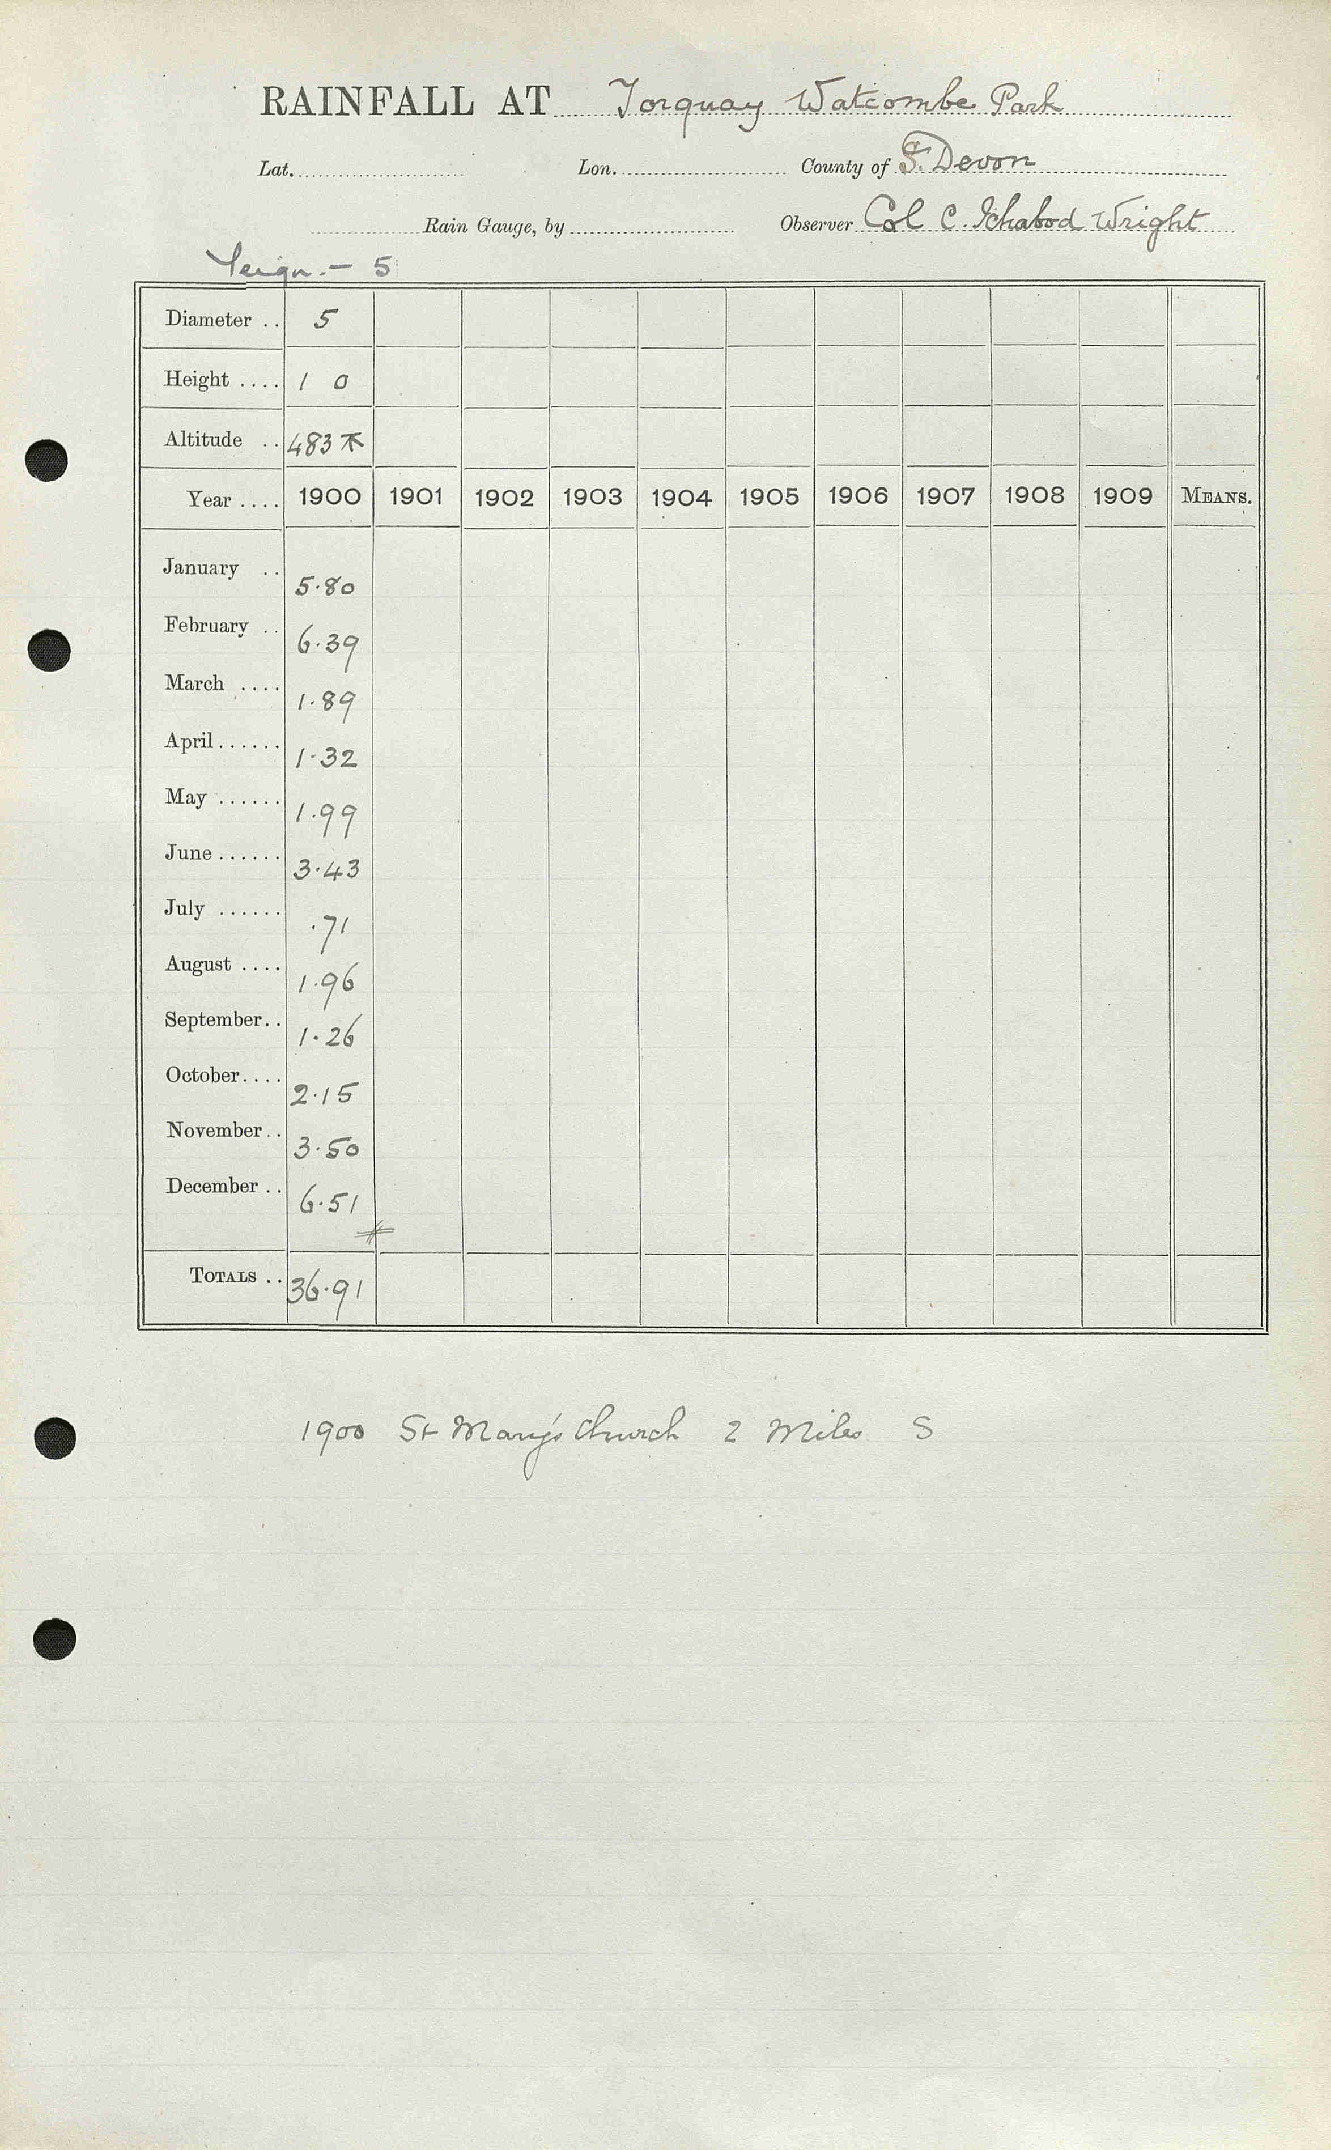 RAINFALL AT Torquay Watcombe Park
Lat. Lon. County of S. Devon
Rain Gauge, by Observer Col C. Ichabod Wright
Teign. – 5
Diameter .. 5
Height .... 1 0
Altitude .. 483
Year .... 1900 1901 1902 1903 1904 1905 1906 1907 1908 1909 MEANS.
January .. 5.80
February .. 6.39
March .... 1.89
April ...... 1.32
May ...... 1.99
June ...... 3.43
July ...... .71
August .... 1.96
September.. 1.26
October.... 2.15
November.. 3.50
December .. 6.51
TOTALS .. 36.91
1900 St Mary's Church 2 Miles S